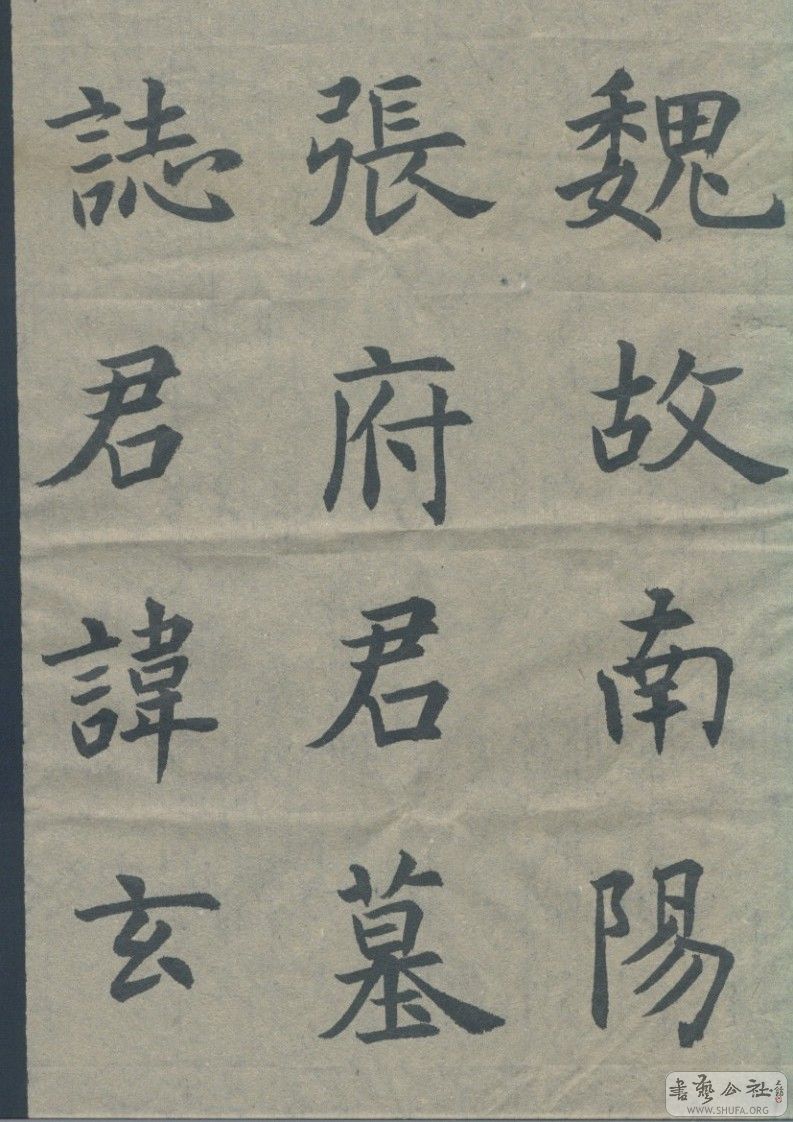 魏故南陽
張府君墓
誌君諱玄
書藝公社
WWW.SHUFA.ORG